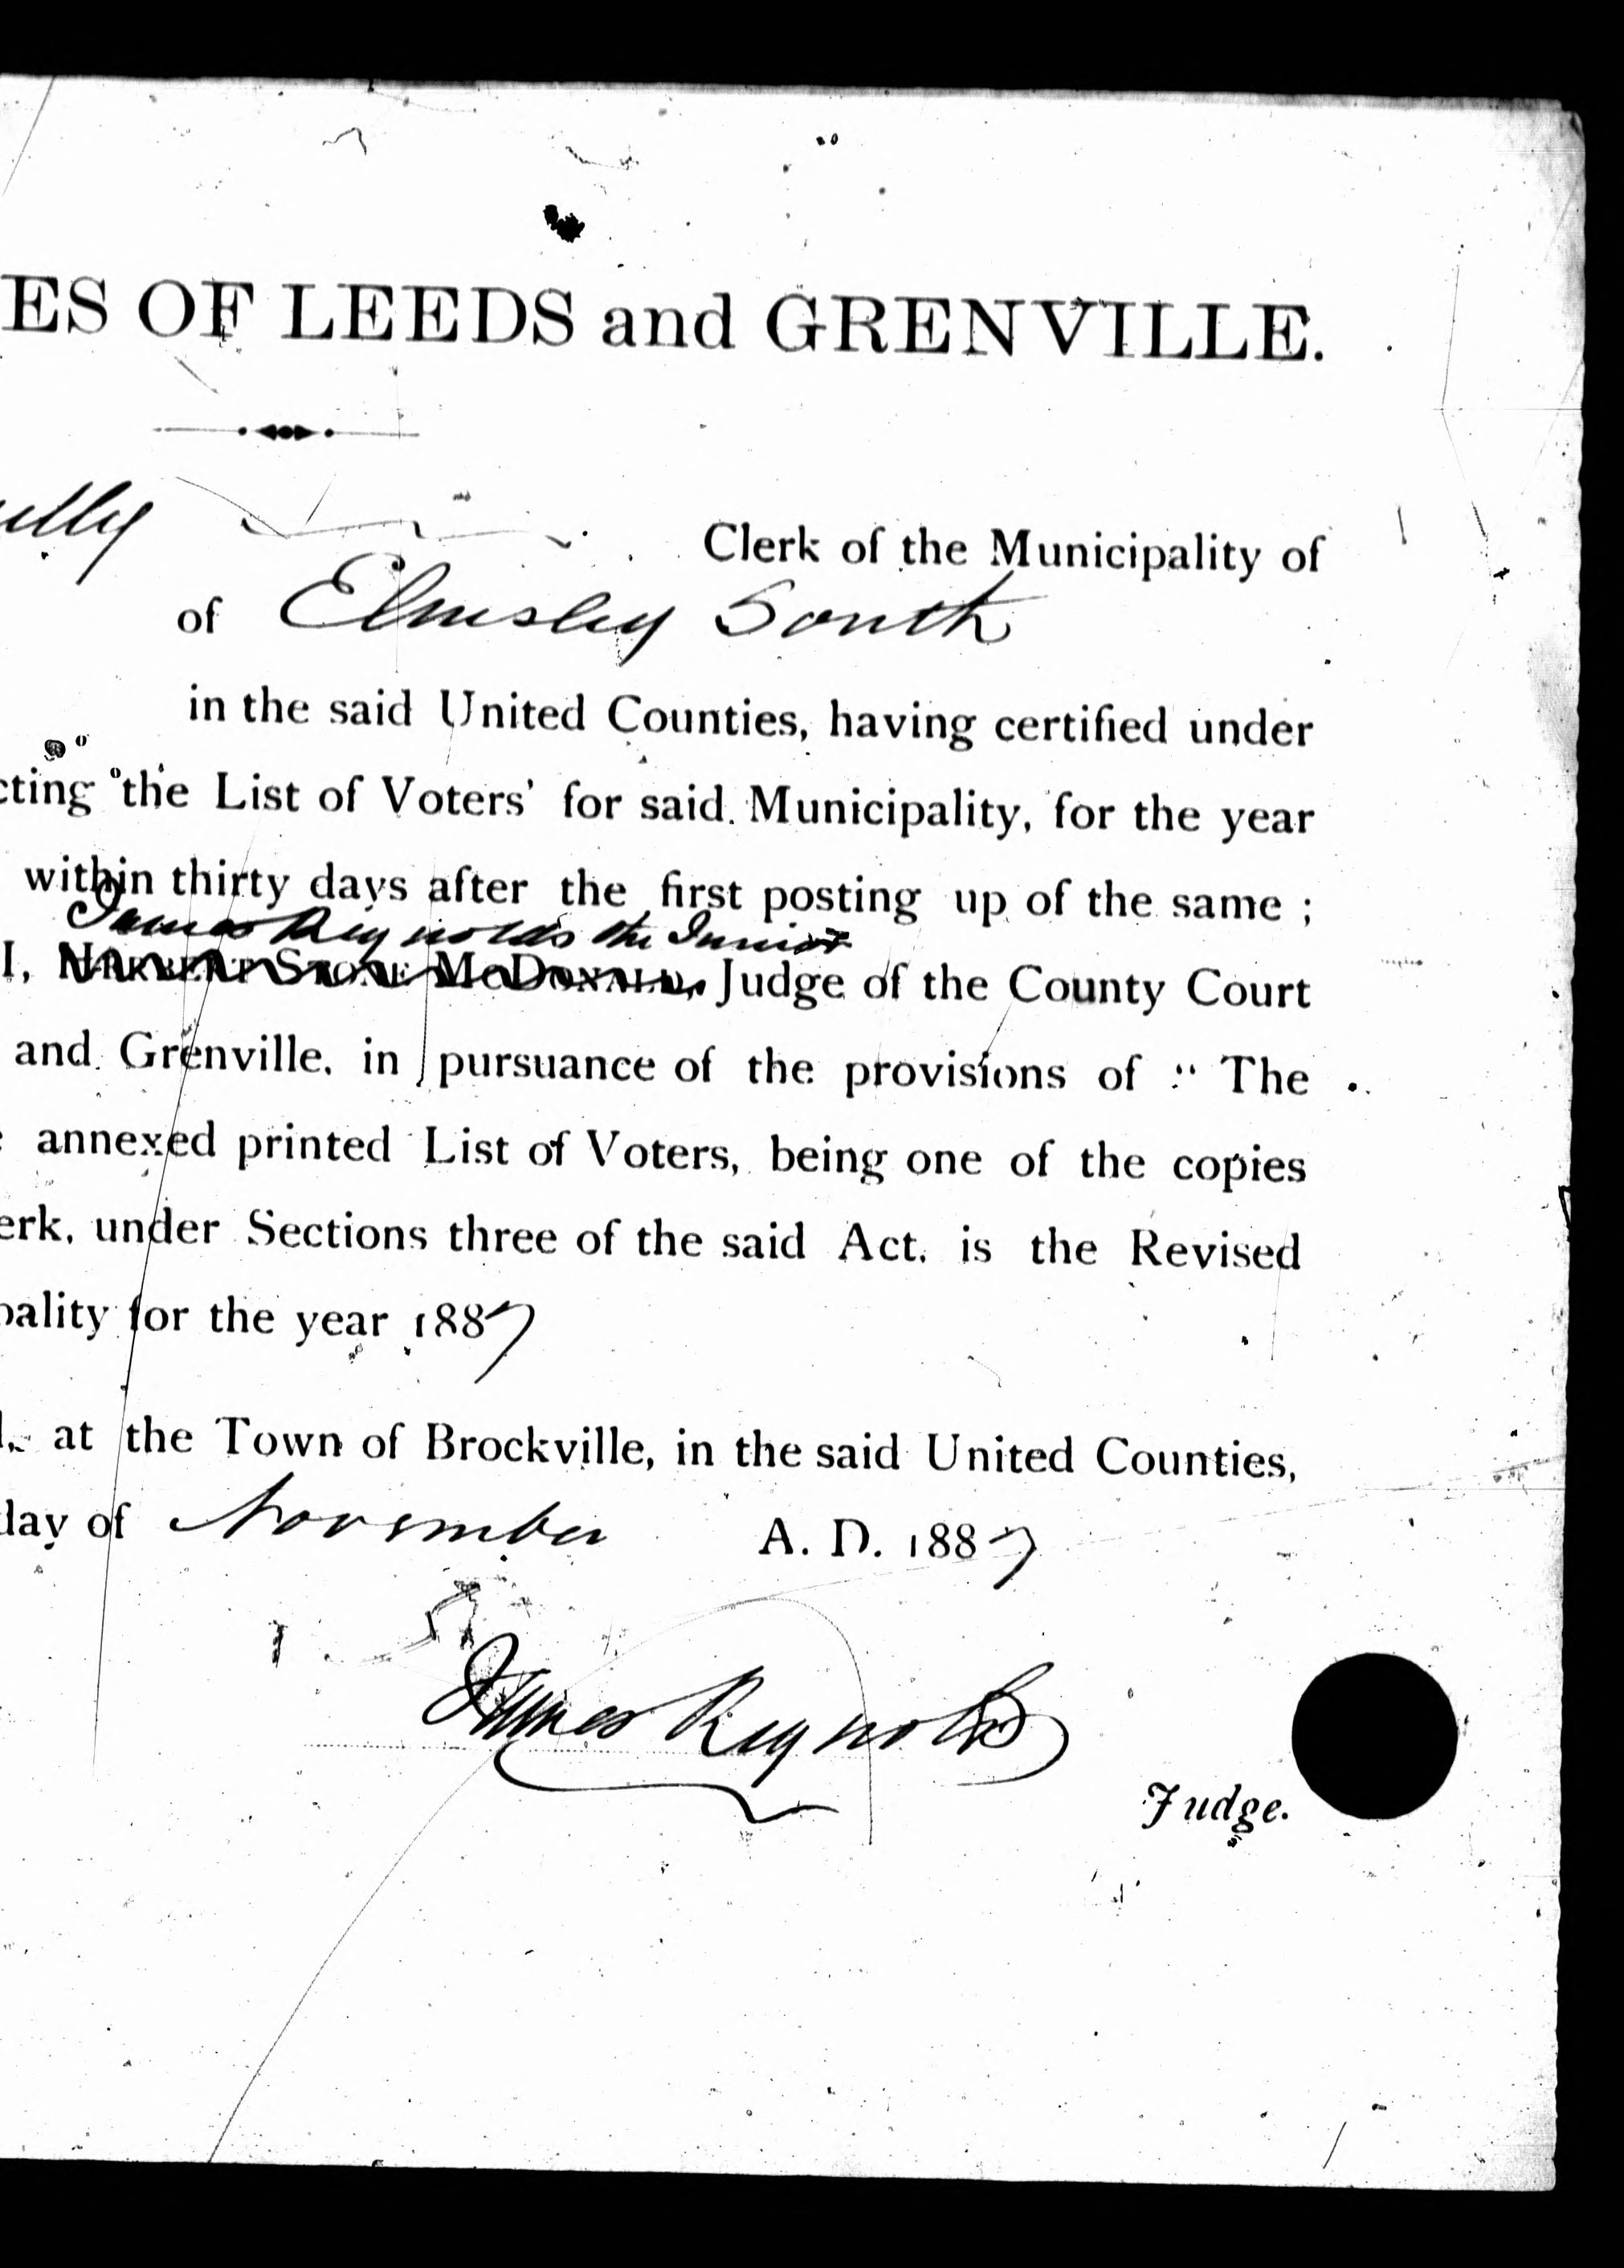 ES OF LEEDS and GRENVILLE.
Clerk of the Municipality of
of Elmsley South
in the said United Counties, having certified under
cting the List of Voters' for said Municipality, for the year
within thirty days after the first posting up of the same ;
James Reynolds the Junior
I, HERBERT STONE McDONALD, Judge of the County Court
and Grenville, in pursuance of the provisions of " The
annexed printed List of Voters, being one of the copies
erk, under Sections three of the said Act, is the Revised
pality for the year 1887
at the Town of Brockville, in the said United Counties,
day of November A. D. 1887
James Reynolds
Judge.